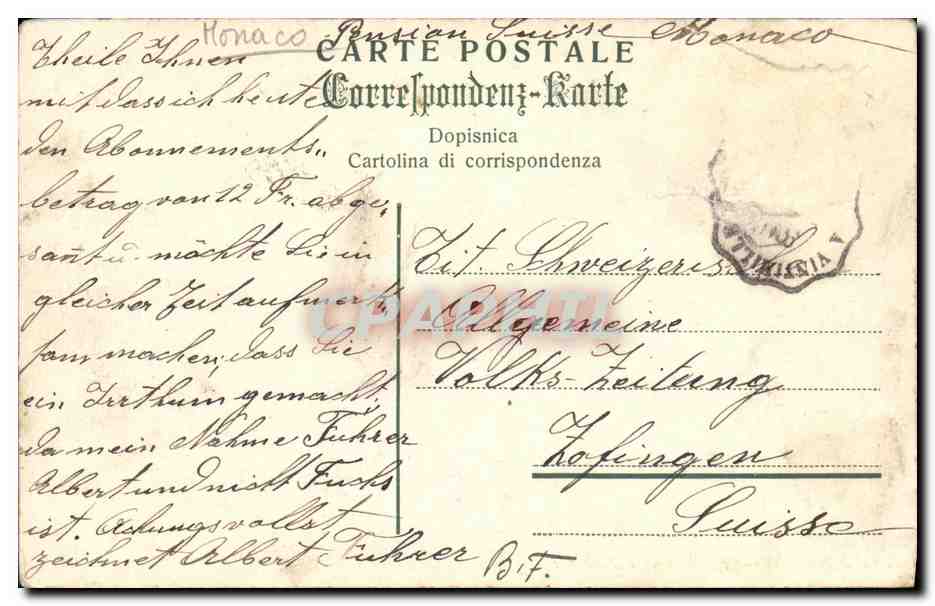 Monaco
Pension Suisse Monaco
CARTE POSTALE
Correspondenz-Karte
Dopisnica
Cartolina di corrispondenza
theile Ihnen
mit dass ich heute
den Abonnements„
betrag von 12 Fr. abge,
sant u. möchte Sie in
gleicher Zeit aufmerk„
sam machen, dass Sie
ein Irrthum gemacht,
da mein Nahme Fuhrer
Albert und nicht Fuchs
ist. Achungsvollst
zeichnet Albert Fuhrer
B.F.
Tit. Schweizeris.
Allgemeine
Volks-Zeitung
Zofingen
Suisse
A VINTIMILLE
CPAPHIL